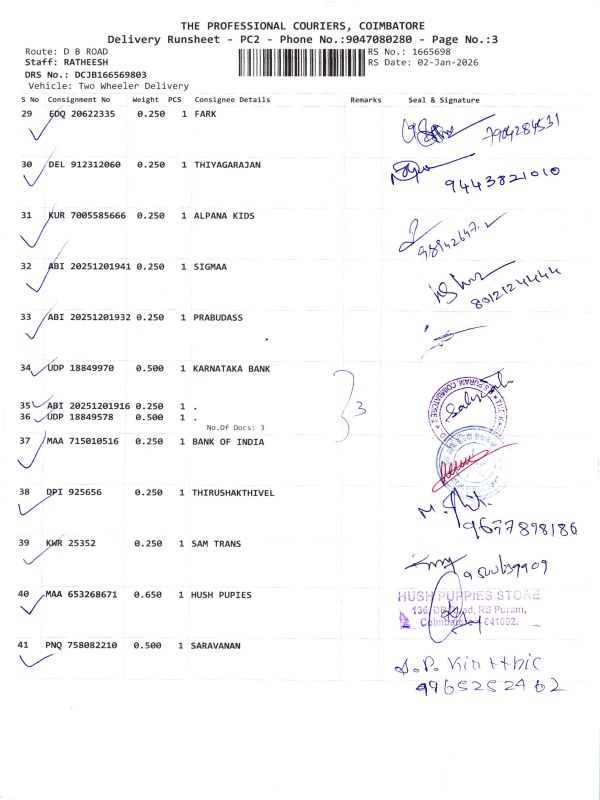 THE PROFESSIONAL COURIERS, COIMBATORE
Delivery Runsheet - PC2 - Phone No.:9047080280 - Page No.:3
Route: D B ROAD
RS No.: 1665698
Staff: RATHEESH
RS Date: 02-Jan-2026
DRS No.: DCJB166569803
Vehicle: Two Wheeler Delivery
S No Consignment No Weight PCS Consignee Details Remarks Seal & Signature
29 EDQ 20622335 0.250 1 FARK
7904284531
30 DEL 912312060 0.250 1 THIYAGARAJAN
9443821010
31 KUR 7005585666 0.250 1 ALPANA KIDS
32 ABI 20251201941 0.250 1 SIGMAA
8012124444
33 ABI 20251201932 0.250 1 PRABUDASS
34 UDP 18849970 0.500 1 KARNATAKA BANK
35 ABI 20251201916 0.250 1 .
3
36 UDP 18849578 0.500 1 .
No.Of Docs: 3
37 MAA 715010516 0.250 1 BANK OF INDIA
38 DPI 925656 0.250 1 THIRUSHAKTHIVEL
9677898186
39 KWR 25352 0.250 1 SAM TRANS
40 MAA 653268671 0.650 1 HUSH PUPIES
HUSH PUPPIES STORE
136, DB Road, RS Puram,
Coimbatore 641002.
41 PNQ 758082210 0.500 1 SARAVANAN
9965252462